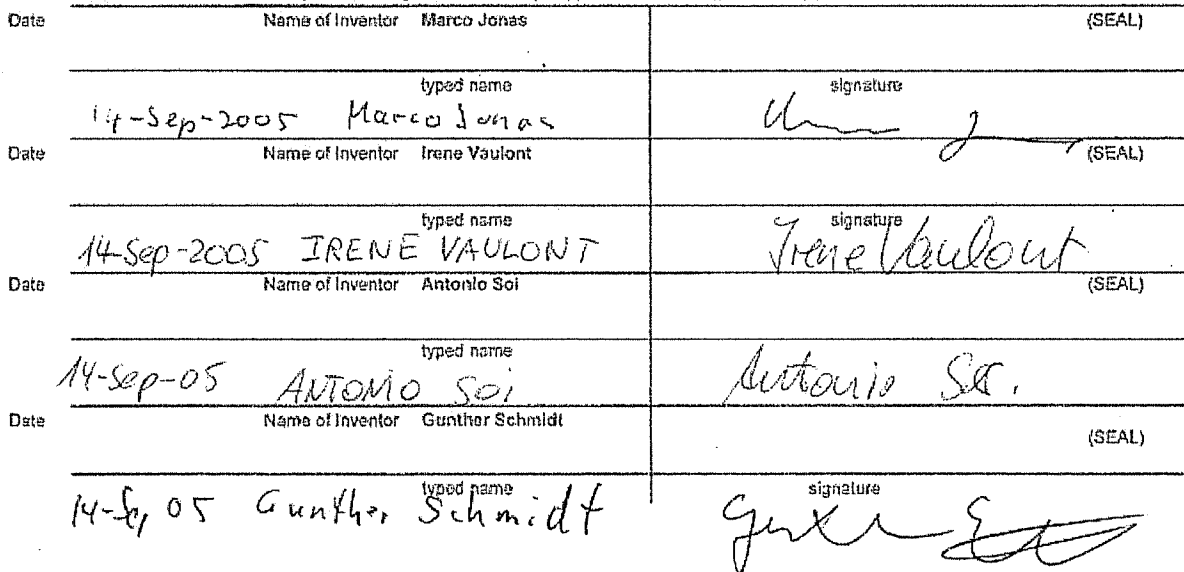 Date Name of Inventor Marco Jonas (SEAL)
typed name signature
14-Sep-2005 Marco Jonas
Date Name of Inventor Irene Vaulont (SEAL)
typed name signature
14-Sep-2005 IRENE VAULONT Irene Vaulont
Date Name of Inventor Antonio Soi (SEAL)
typed name
14-Sep-05 ANTONIO Soi Antonio Soi.
Date Name of Inventor Gunther Schmidt (SEAL)
typed name signature
14-Sep 05 Gunther Schmidt